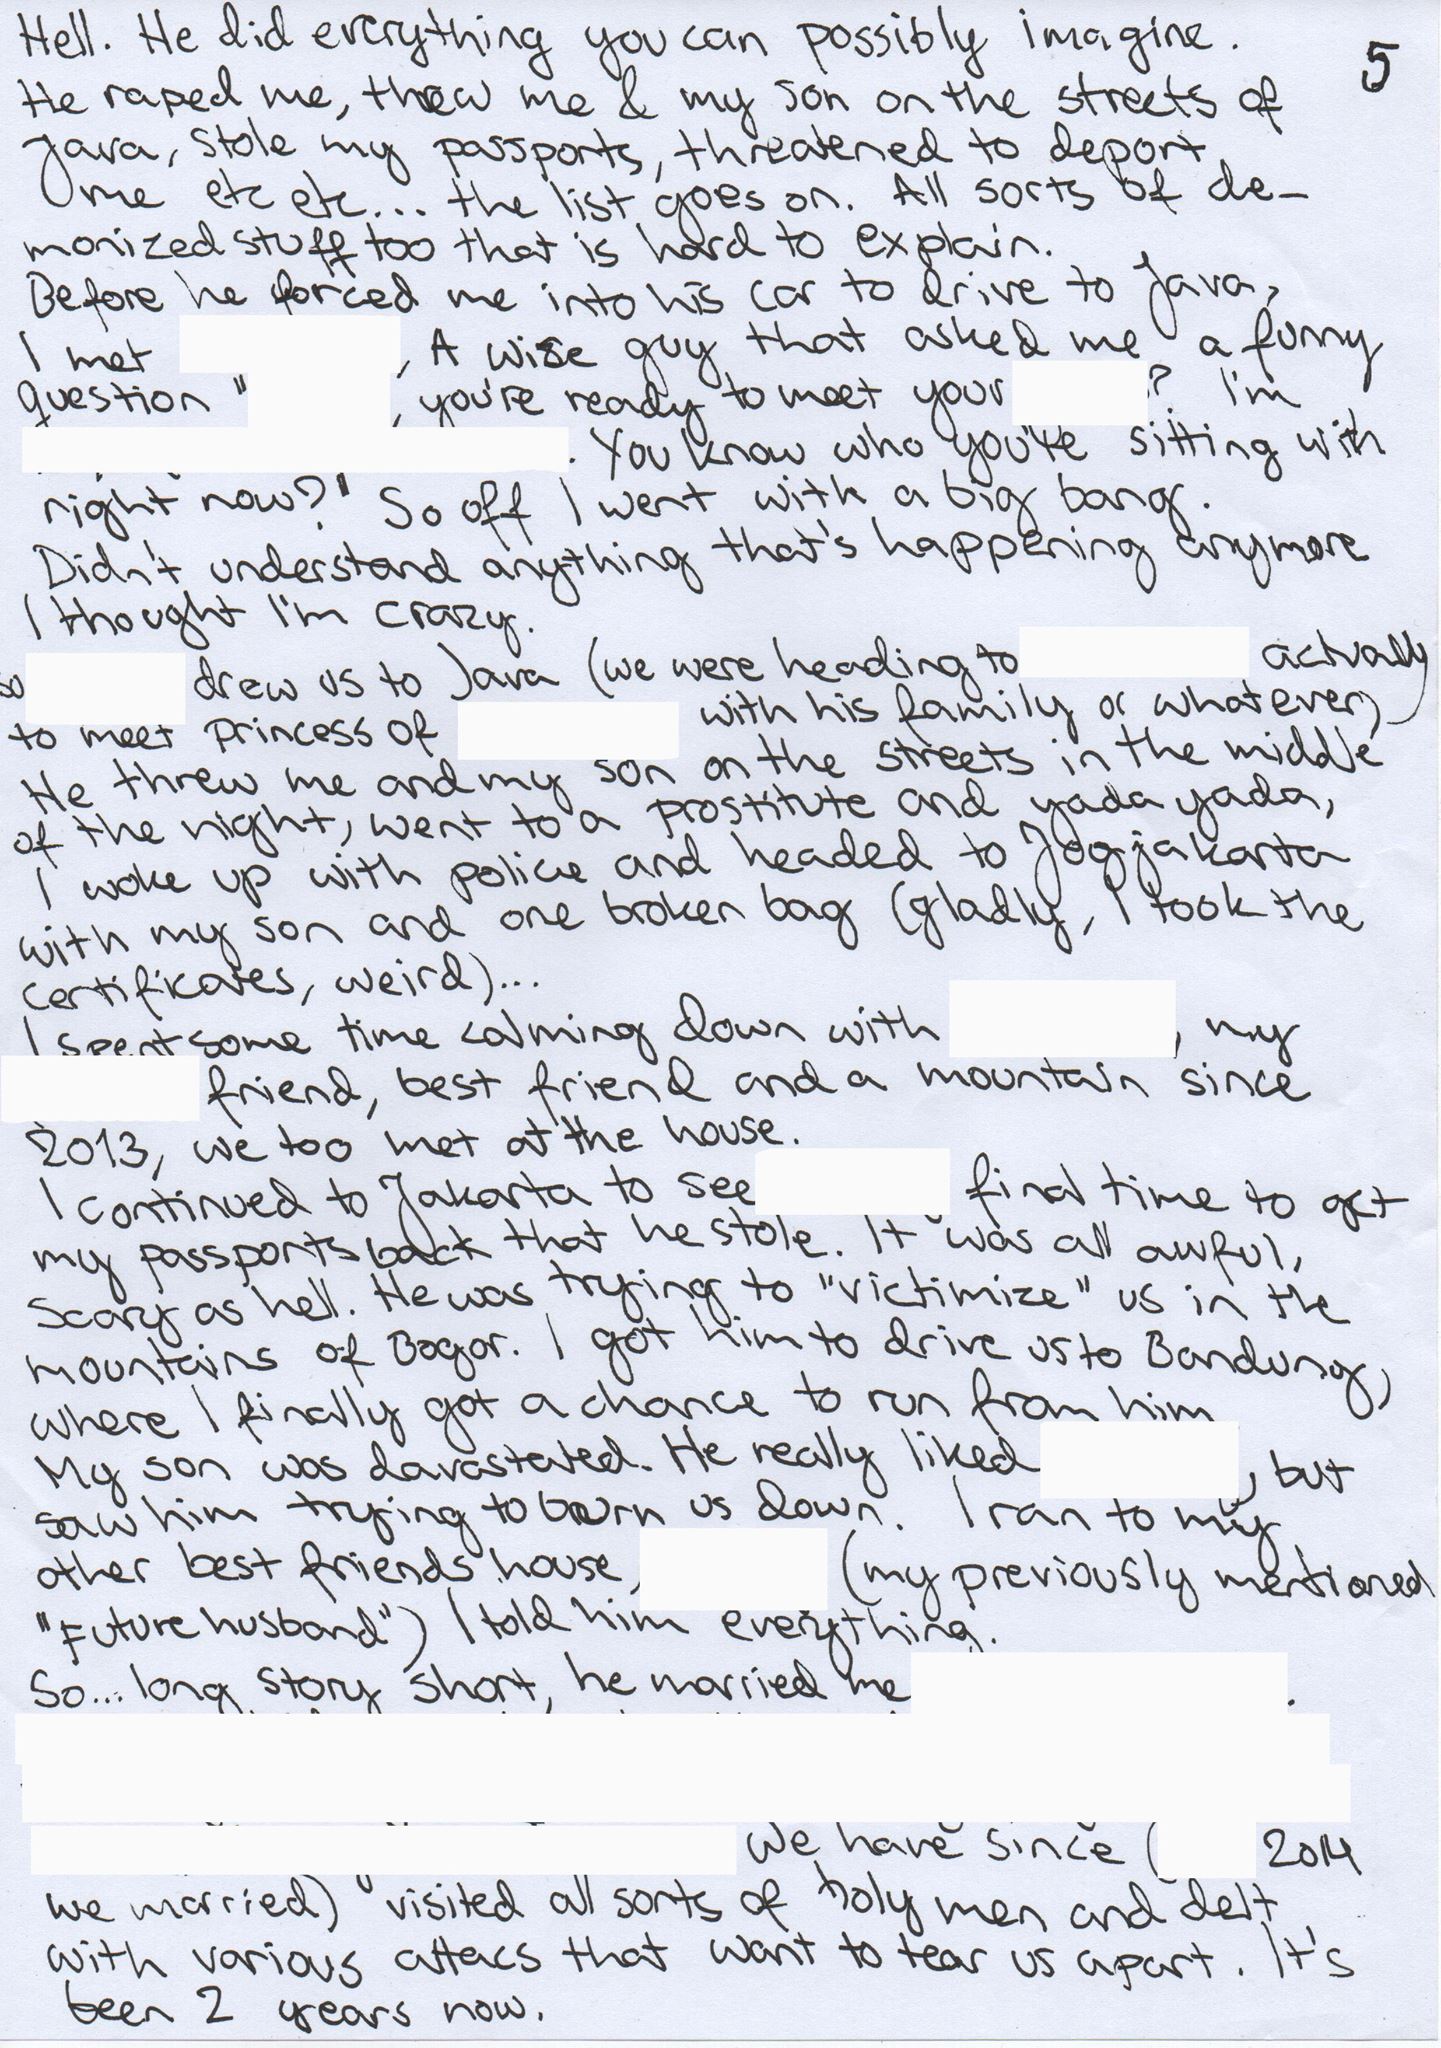 Hell. He did everything you can possibly imagine.
5
He raped me, threw me & my son on the streets of
Java, stole my passports, threatened to deport
me etc etc... the list goes on. All sorts of de-
monized stuff too that is hard to explain.
Before he forced me into his car to drive to Java,
I met , A wise guy that asked me a funny
question " , you're ready to meet your ? I'm
. You know who you're sitting with
right now?" So off I went with a big bang.
Didn't understand anything that's happening anymore
I thought I'm crazy.
so drew us to Java (we were heading to actually
to meet princess of with his family or whatever)
He threw me and my son on the streets in the middle
of the night, went to a prostitute and yada yada,
I woke up with police and headed to Jogjakarta
with my son and one broken bag (gladly, I took the
certificates, weird)...
I spent some time calming down with , my
friend, best friend and a mountain since
2013, we too met at the house.
I continued to Jakarta to see final time to get
my passports back that he stole. It was all awful,
Scary as hell. He was trying to "victimize" us in the
mountains of Bogor. I got him to drive us to Bandung,
where I finally got a chance to run from him
My son was davastated. He really liked , but
saw him trying to burn us down. I ran to my
other best friends house, (my previously mentioned
"Future husband") I told him everything.
So... long story short, he married me .
We have since ( 2014
we married) visited all sorts of holy men and delt
with various attacs that want to tear us apart. It's
been 2 years now.